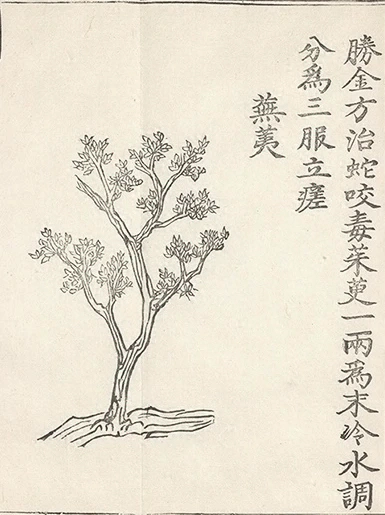 勝金方治蛇咬毒茱萸一兩爲末冷水調
分爲三服立瘥
蕪荑